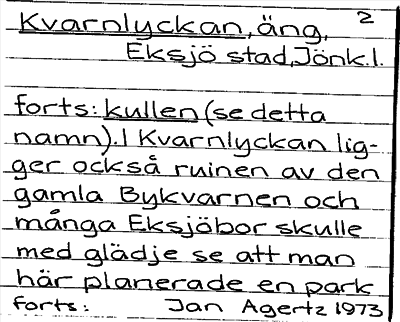 2
Kvarnlyckan, äng,
Eksjö stad, Jönk.l.
forts: kullen (se detta
namn). I Kvarnlyckan lig-
ger också ruinen av den
gamla Bykvarnen och
många Eksjöbor skulle
med glädje se att man
här planerade en park
forts: Jan Agertz 1973